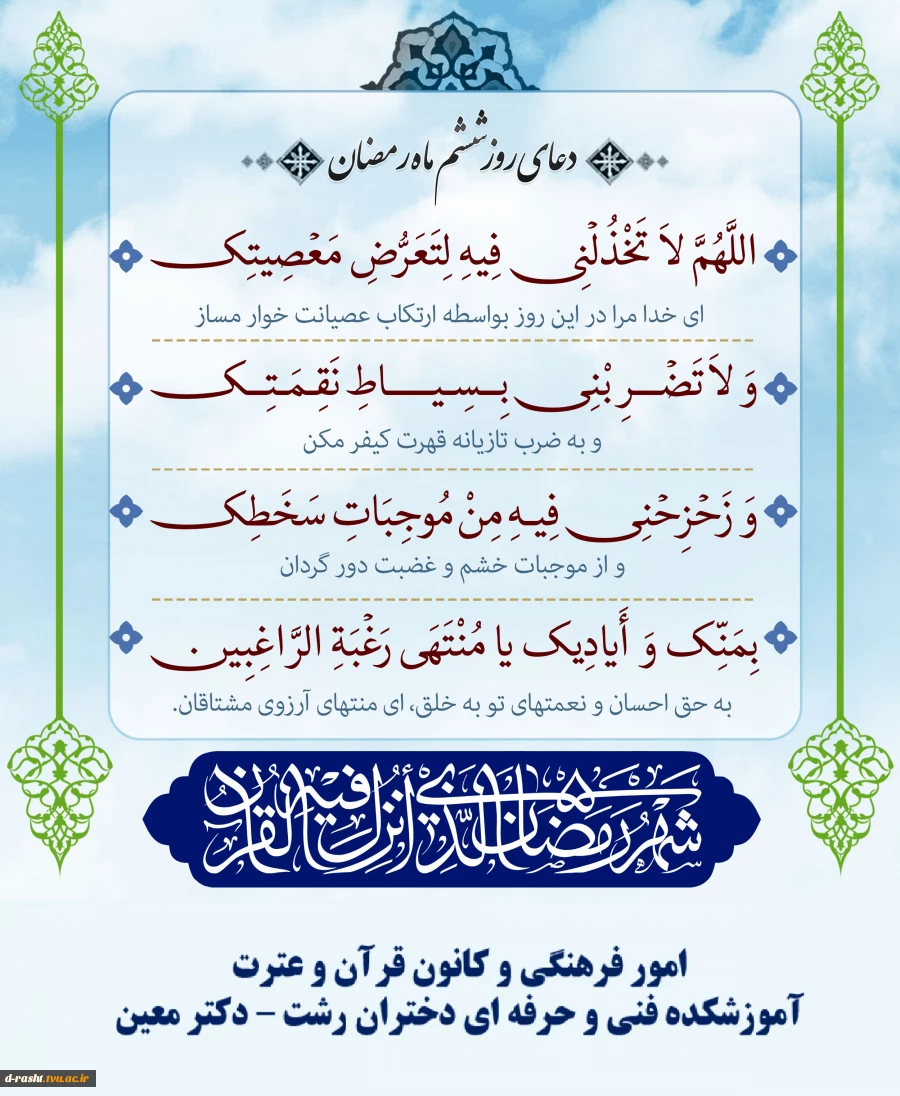 دعای روز ششم ماه رمضان
اللَّهُمَّ لاَ تَخْذُلْنِی فِیهِ لِتَعَرُّضِ مَعْصِیتِکَ
ای خدا مرا در این روز بواسطه ارتکاب عصیانت خوار مساز
وَ لاَ تَضْرِبْنِی بِسِیَاطِ نَقِمَتِکَ
و به ضرب تازیانه قهرت کیفر مکن
وَ زَحْزِحْنِی فِیهِ مِنْ مُوجِبَاتِ سَخَطِکَ
و از موجبات خشم و غضبت دور گردان
بِمَنِّکَ وَ أَیادِیکَ یا مُنْتَهَی رَغْبَةِ الرَّاغِبِینَ
به حق احسان و نعمتهای تو به خلق، ای منتهای آرزوی مشتاقان.
شهر رمضان الذی أنزل فیه القرآن
امور فرهنگی و کانون قرآن و عترت
آموزشکده فنی و حرفه ای دختران رشت - دکتر معین
d-rasht.tvu.ac.ir